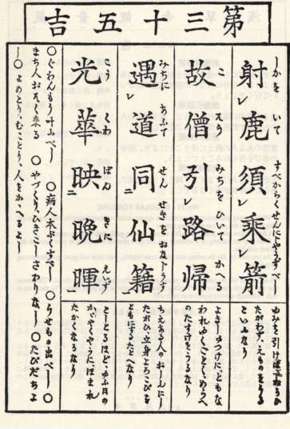 第三十五吉
射鹿須乗箭
しかを いて すべからくせんにじやうずべし
故僧引路帰
こそう みちをひいて かへる
遇道同仙籍
みちにあふて せんせきをおなじうす
光華映晩暉
こうくわ ばんきに えいず
ゆみを引けばねらひ
たがわず、えものをうる
といふなり
よきしゆつけに、ともな
われゆくごとく、めうへ
のたすけを、うるなり
ちえある人のおしへに
したがひ、立身よろこびを
ともにするたとへなり
ゆふ日の
かがやくやうに、ほまれ
たかくなるなり
○ぐわんもう叶ふべし ○病人本ぶくすべし ○うせもの出べし ○
まち人おそく来る ○やづくり、ひきこしさわりなし ○たびだちよ
し ○よめとり、むことり、人をかゝへるよし